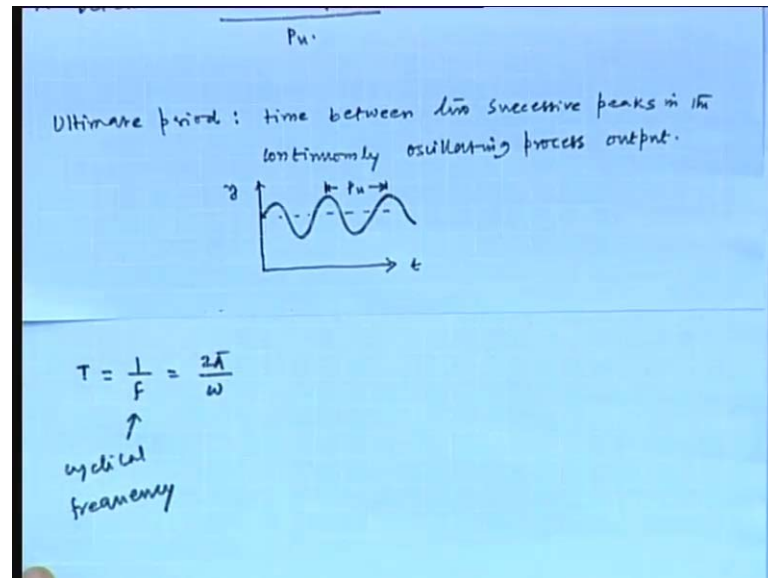 Pu.
Ultimate period : time between two successive peaks in the
continuously oscillating process output.
y
Pu
t
T = 1/f = 2π/ω
cyclical
frequency